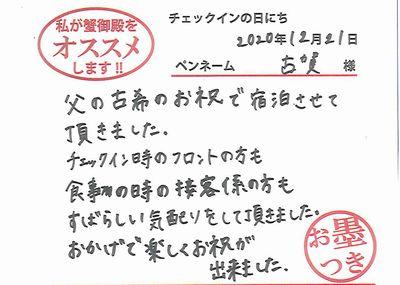 私が蟹御殿を
オススメ
します!!
チェックインの日にち
2020年12月21日
ペンネーム 古賀 様
父の古希のお祝で宿泊させて
頂きました.
チェックイン時のフロントの方も
食事の時の接客係の方も
すばらしい気配りをして頂きました.
おかげで楽しくお祝が
出来ました.
お墨
つき